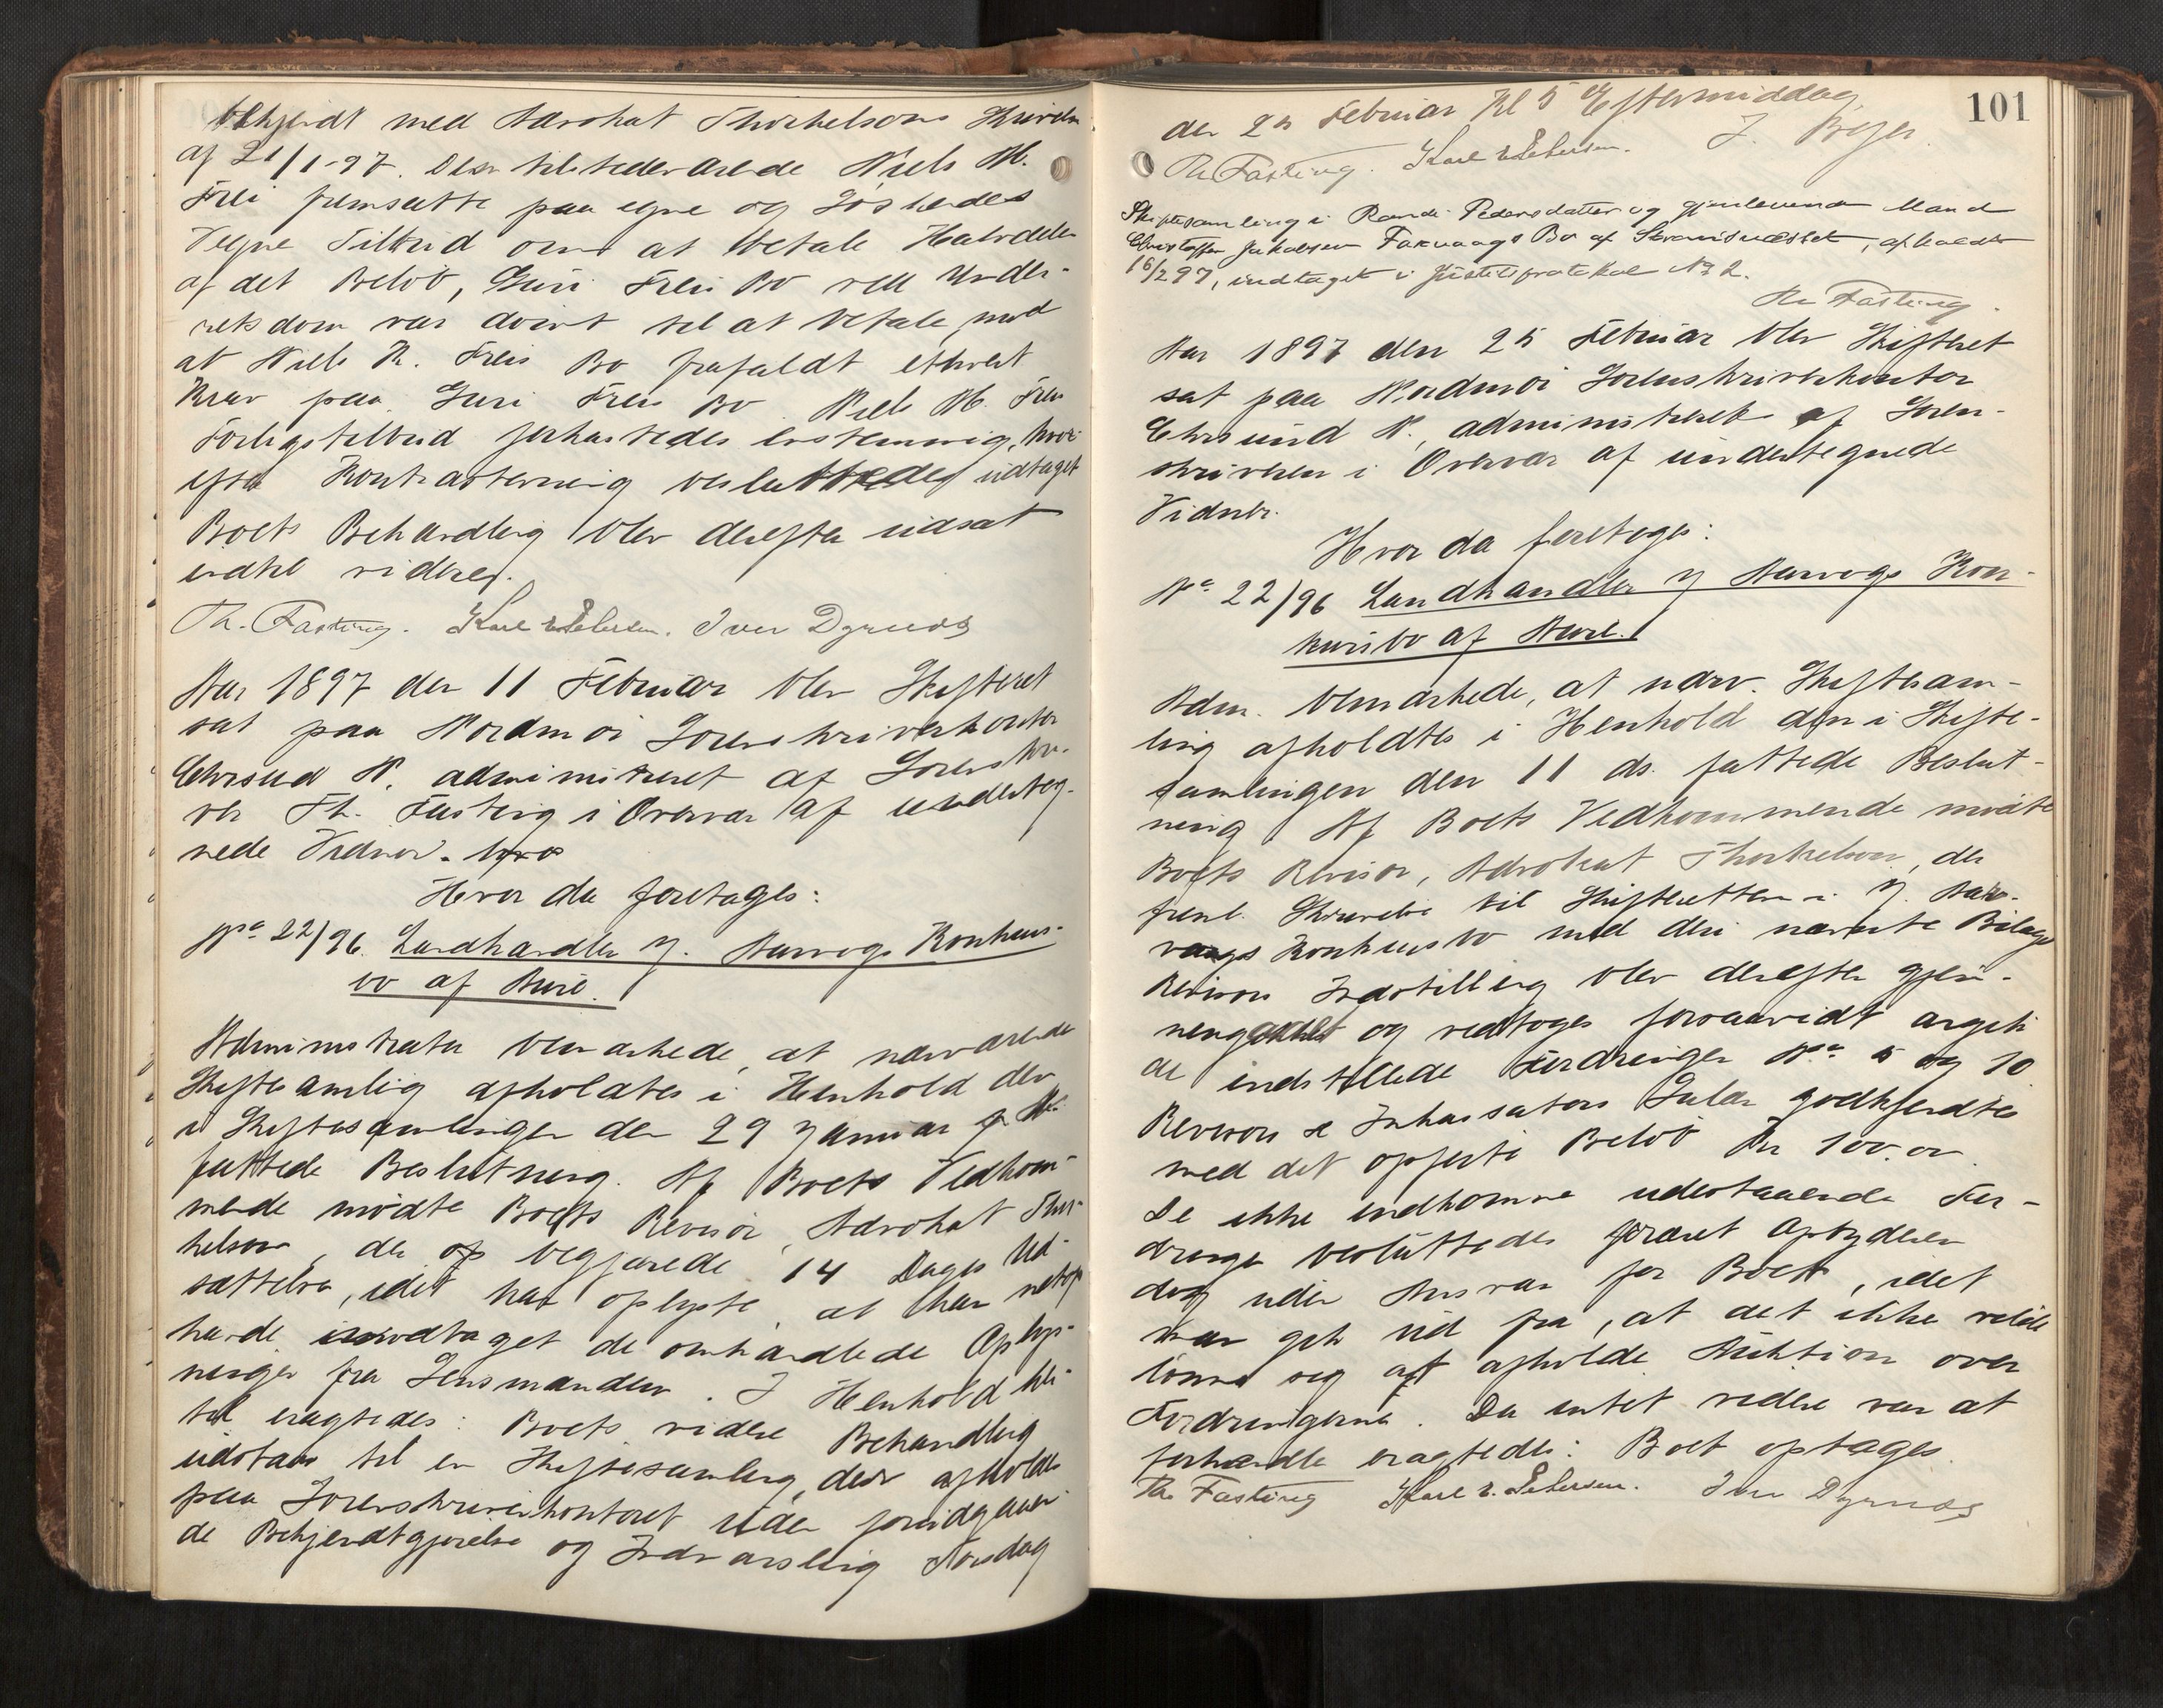 bekjendt med Advokat Thorkelsons Skrivelse
af 21/1-97. Den tilstedeværende Niels M.
Frei fremsatte paa egne og Søskendes
Vegne Tilbud om at betale Halvdelen
af det Beløb, Guri Freis Bo ved Under-
retsdom var dømt til at betale, mod
at Niels N. Freis Bo frafaldt ethvert
Krav paa Guri Freis Bo. Niels M. Freis
Forligstilbud forkastedes enstemmig, hvor-
efter Kontrastevning besluttedes udtaget
Boets Behandling blev derefter udsat
indtil videre.
Th. Fasting. Karl E. Petersen. Iver Dyrnæs
Aar 1897 den 11 Februar blev Skifteret
sat paa Nordmør Sorenskriverkontor
Chrsund N. administreret af Sorenskri-
ver Th. Fasting i Overvær af underteg-
nede Vidner.
Hvor da foretages:
No 22/96. Landhandler J. Aarvogs Konkurs-
bo af Aure.
Administrator bemærkede, at nærværende
Skiftesamling afholdtes i Henhold den
i Skiftesamlingen den 29 Januar
fattede Beslutning. Af Boets Vedkom-
mende mødte Boets Revisor, Advokat Thor-
kelson, der begjærede 14 Dages Ud-
sættelse, idet han oplyste, at han netop
havde modtaget de omhandlede Oplys-
ninger fra Lensmanden. I Henhold her-
til eragtedes: Boets videre Behandling
udstaar til en Skiftesamling, der afholdes
paa Sorenskriverkontoret uden foreidgaaen-
de Bekjendtgjørelse og Indvarsling Torsdag
101
den 25 Februar Kl 5 Eftermiddag.
Th Fasting. Karl E. Petersen. J. Beyer
Skiftesamling i Randi Pedersdatter og gjenlevende Mand
Christoffer Jakobsen Fakvaags Bo af , afholdes
16/2 97, indtaget i Justitsprotokol No 2.
Th Fasting
Aar 1897 den 25 Februar blev Skifteret
sat paa Nordmør Sorenskriverkontor
Chrsund N., administreret af Soren-
skriveren i Overvær af undertegnede
Vidner.
Hvor da foretoges:
No 22/96 Landhandler J Aarvogs Kon-
kursbo af Aure.
Adm. bemærkede, at nærv. Skiftesam-
ling afholdtes i Henhold den i Skifte-
samlingen den 11 ds. fattede Beslut-
ning. Af Boets Vedkommende mødte
Boets Revisor, Advokat Thorkelson, der
freml. Skrivelse til Skifteretten i J. Aar-
vaags Konkursbo med deri nævnte Bilage
Revisors Indstilling blev derefter gjen-
nemgaaet og vedtoges forsaavidt angik
de indstillede Fordringer No 5 og 10
Revisors & Inkassators Salær godkjendtes
med det opførte Beløb Kr 100.00.
De ikke indkomne udestaaende For-
dringer besluttedes foræret Opbyderen
dog uden Ansvar for Boet, idet
man gik ud fra, at det ikke vilde
lønne sig at afholde Auktion over
Fordringerne. Da intet videre var at
forhandle eragtedes: Boet optages.
Th Fasting Karl E. Petersen. Iver Dyrnæs